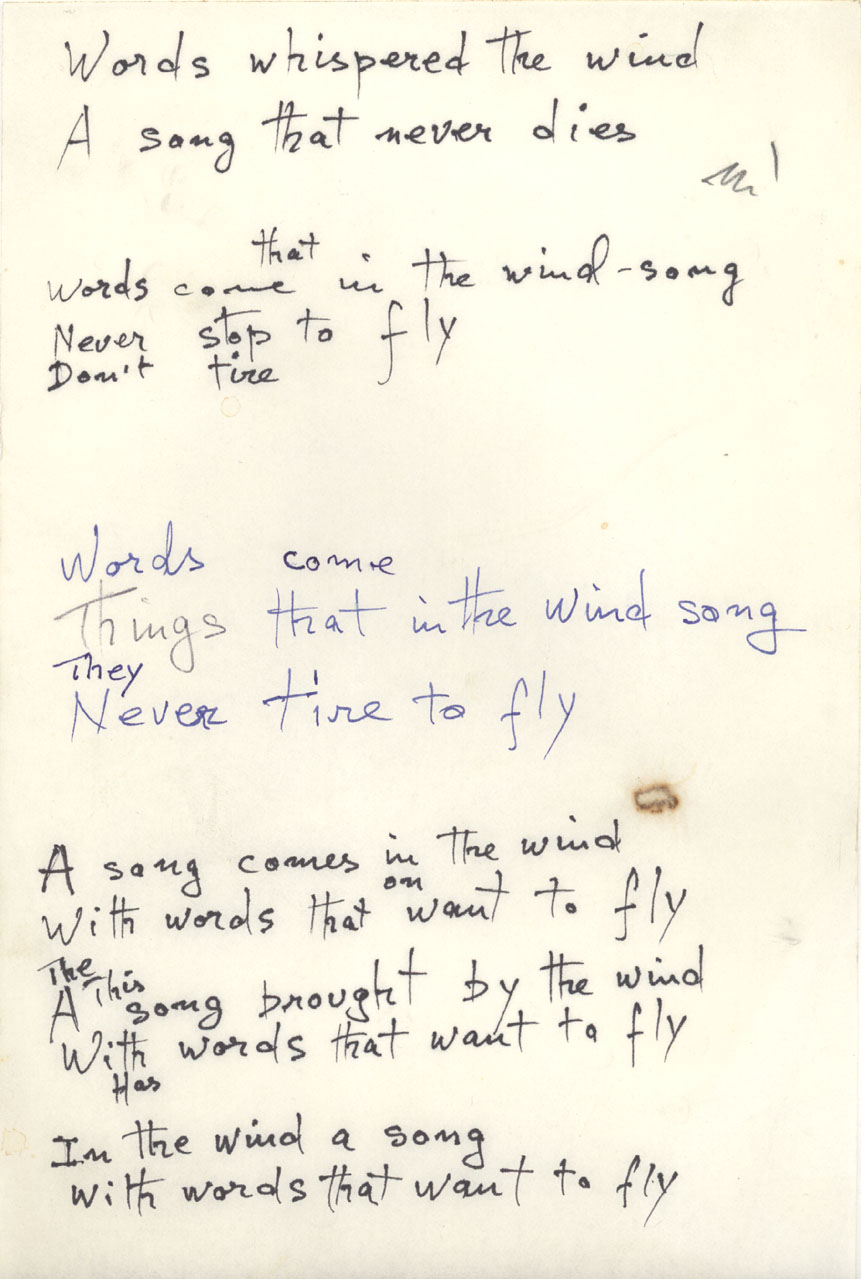 Words whispered the wind
A song that never dies
that
Words come in the wind-song
Never stop to fly
Don't tire
Words come
Things that in the wind song
They
Never tire to fly
A song comes in the wind
on
With words that want to fly
The This
A song brought by the wind
With words that want to fly
Has
In the wind a song
with words that want to fly